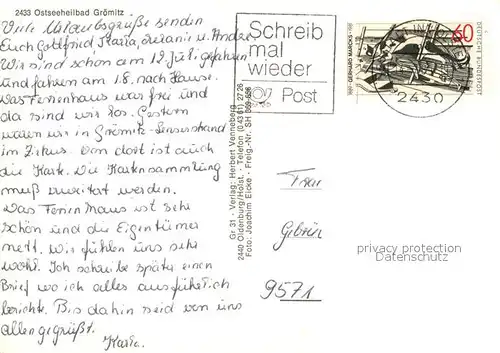 2433 Ostseeheilbad Grömitz
Viele Urlaubsgrüße senden
Euch Gottfried, Maria, Melanie u. Andre.
Wir sind schon am 12. Juli gefahren
und fahren am 18. nach Hause.
Das Ferienhaus war frei und
da sind wir los. Gestern
waren wir in Grömitz-Lensterstrand
im Zirkus. Von dort ist auch
die Karte. Die Kartensammlung
muß erweitert werden.
Das Ferien Haus ist sehr
schön und die Eigentümer
nett. Wir fühlen uns sehr
wohl. Ich schreibe später einen
Brief wo ich alles ausführlich
berichte. Bis dahin seid von uns
allen gegrüßt.
Maria.
Gr 31 - Verlag: Herbert Venneberg
2440 Oldenburg/Holst. - Telefon (0 43 61) 27 26
Foto: Joachim Eicke - Freig.-Nr. SH
Schreib
mal
wieder
Post
2430
60
GERHARD MARCKS
DEUTSCHE BUNDESPOST
Frau
9571
privacy protection
Datenschutz